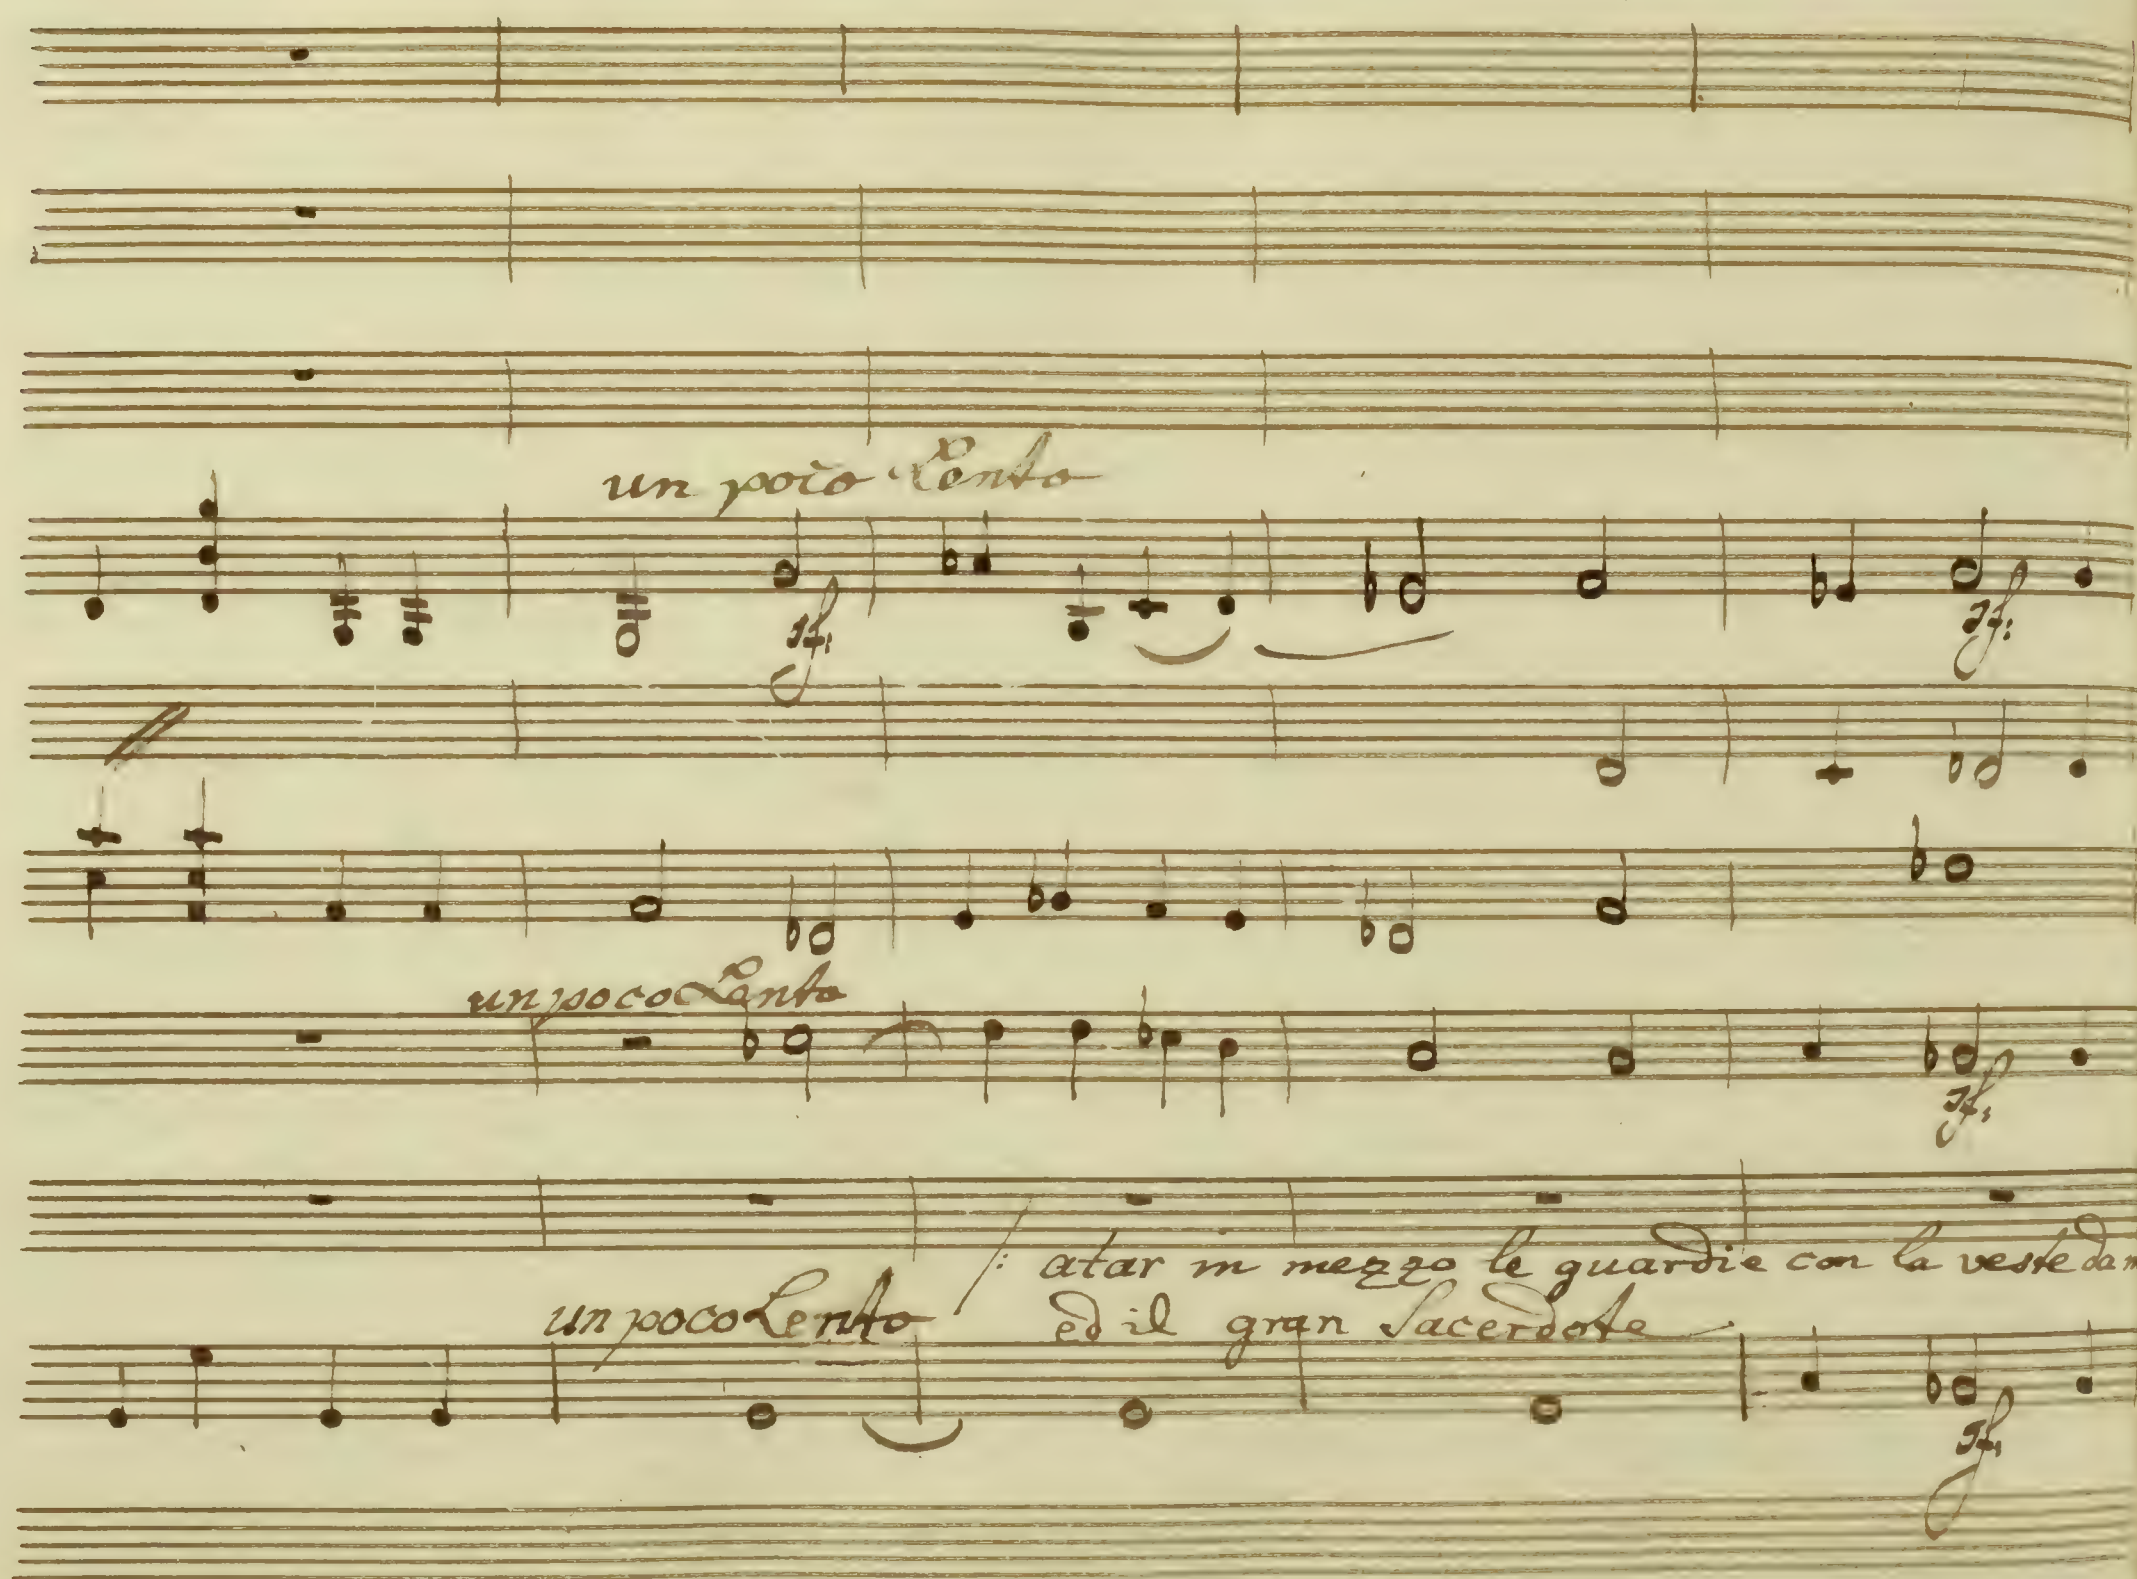 un poco Lento
sf:
sf:
un poco Lento
sf:
/: atar in mezzo le guardie con la veste
un poco Lento
ed il gran Sacerdote
sf: